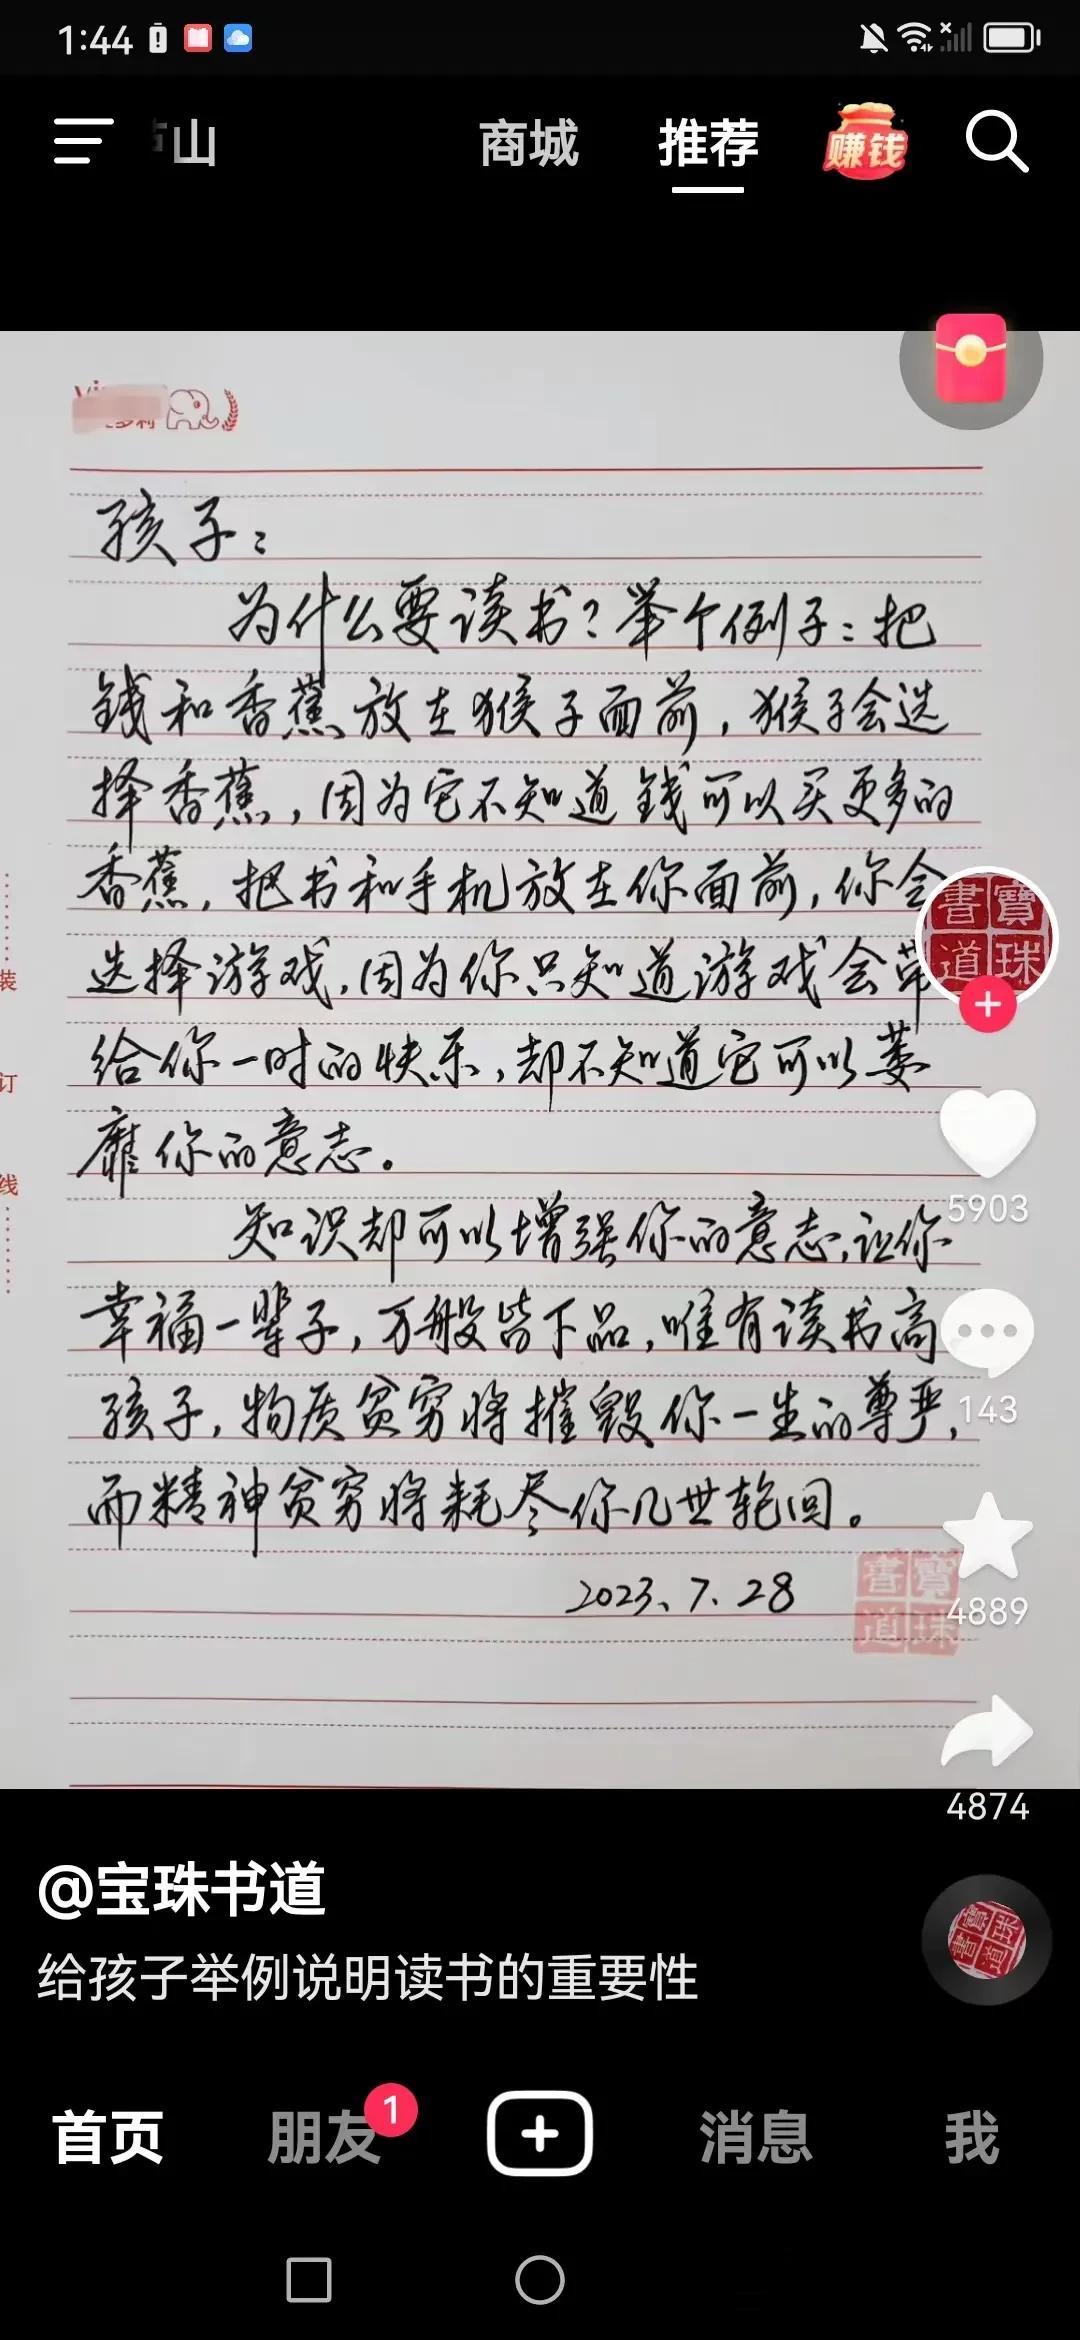 1:44
山
商城
推荐
赚钱
孩子：
为什么要读书？举个例子：把
钱和香蕉放在猴子面前，猴子会选
择香蕉，因为它不知道钱可以买更多的
香蕉，把书和手机放在你面前，你会
选择游戏，因为你只知道游戏会带
给你一时的快乐，却不知道它可以萎
靡你的意志。
知识却可以增强你的意志，让你
幸福一辈子，万般皆下品，唯有读书高
孩子，物质贫穷将摧毁你一生的尊严，
而精神贫穷将耗尽你几世轮回。
2023、7、28
寶珠書道
装
订
线
寶珠書道
5903
143
4889
4874
@宝珠书道
给孩子举例说明读书的重要性
寶珠書道
首页
朋友
1
消息
我